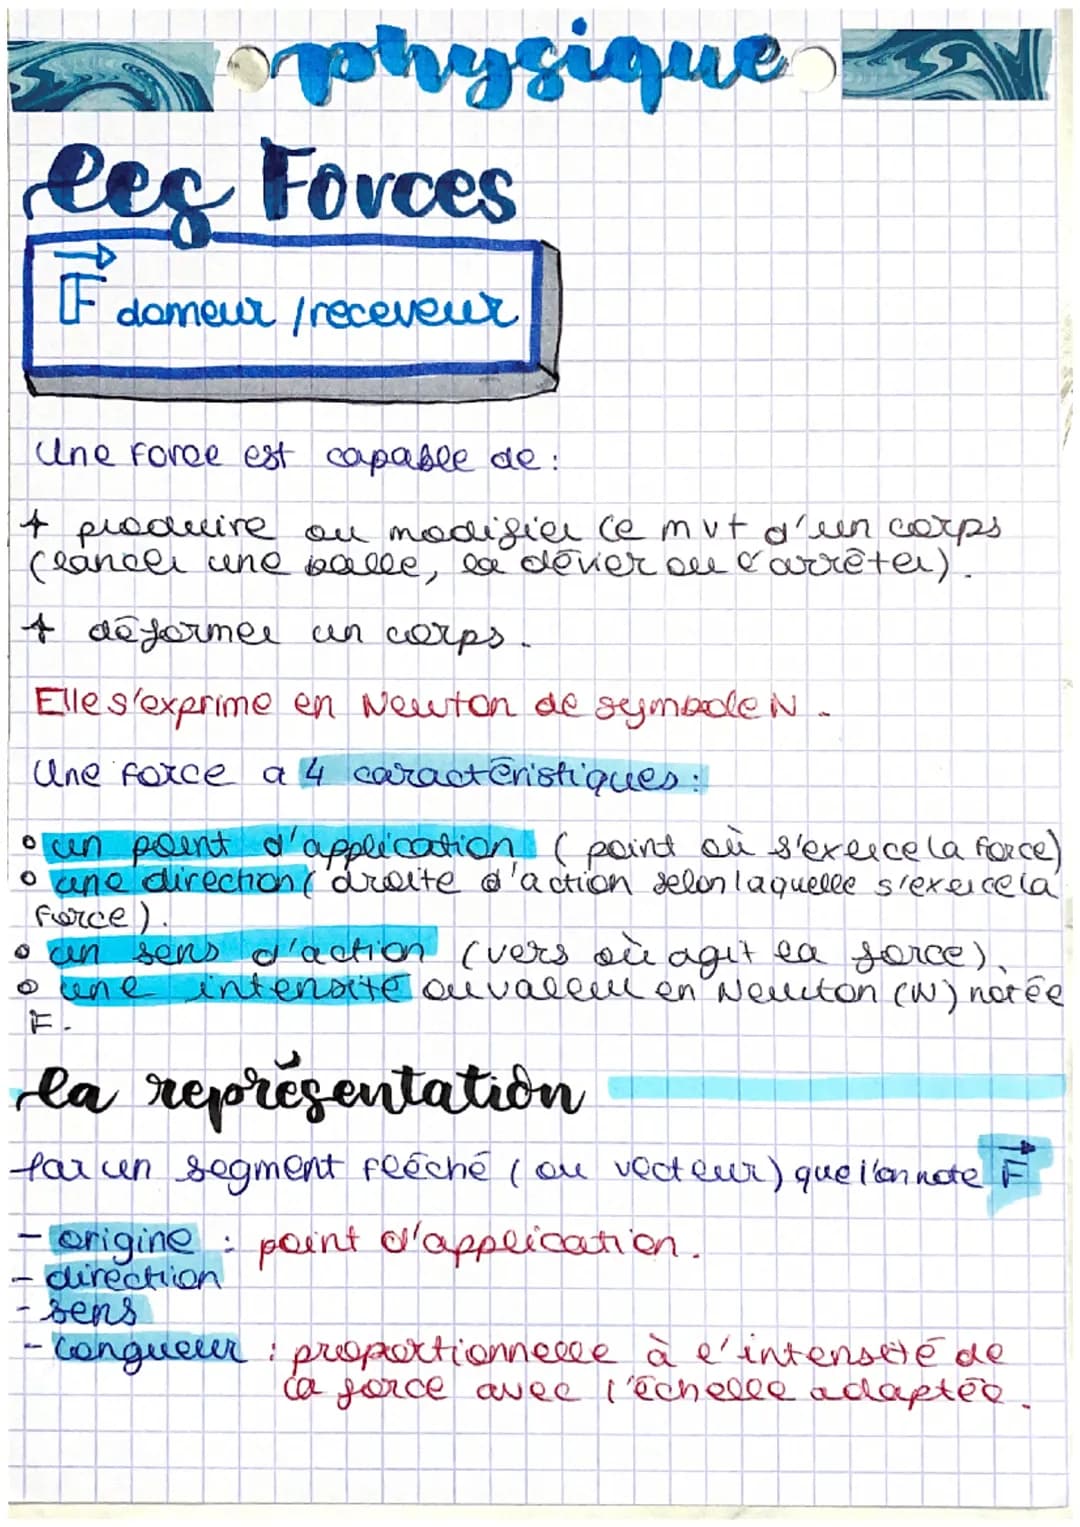 physique
les Forces
F donneur / receveur
Une force est capable de :
+ produire ou modifier le mvt d'un corps
(lancer une balle, la dévier ou l'arrêter).
+ déformer un corps.
Elle s'exprime en Newton de symbole N.
Une force a 4 caractéristiques :
• un point d'application (point où s'exerce la force)
• une direction (droite d'action selon laquelle s'exerce la
force).
• un sens d'action (vers où agit la force).
• une intensité ou valeur en Newton (N) notée
F.
la représentation
Par un segment fléché (ou vecteur) que l'on note F
- origine : point d'application.
- direction
- sens
- longueur : proportionnelle à l'intensité de
la force avec l'échelle adaptée.